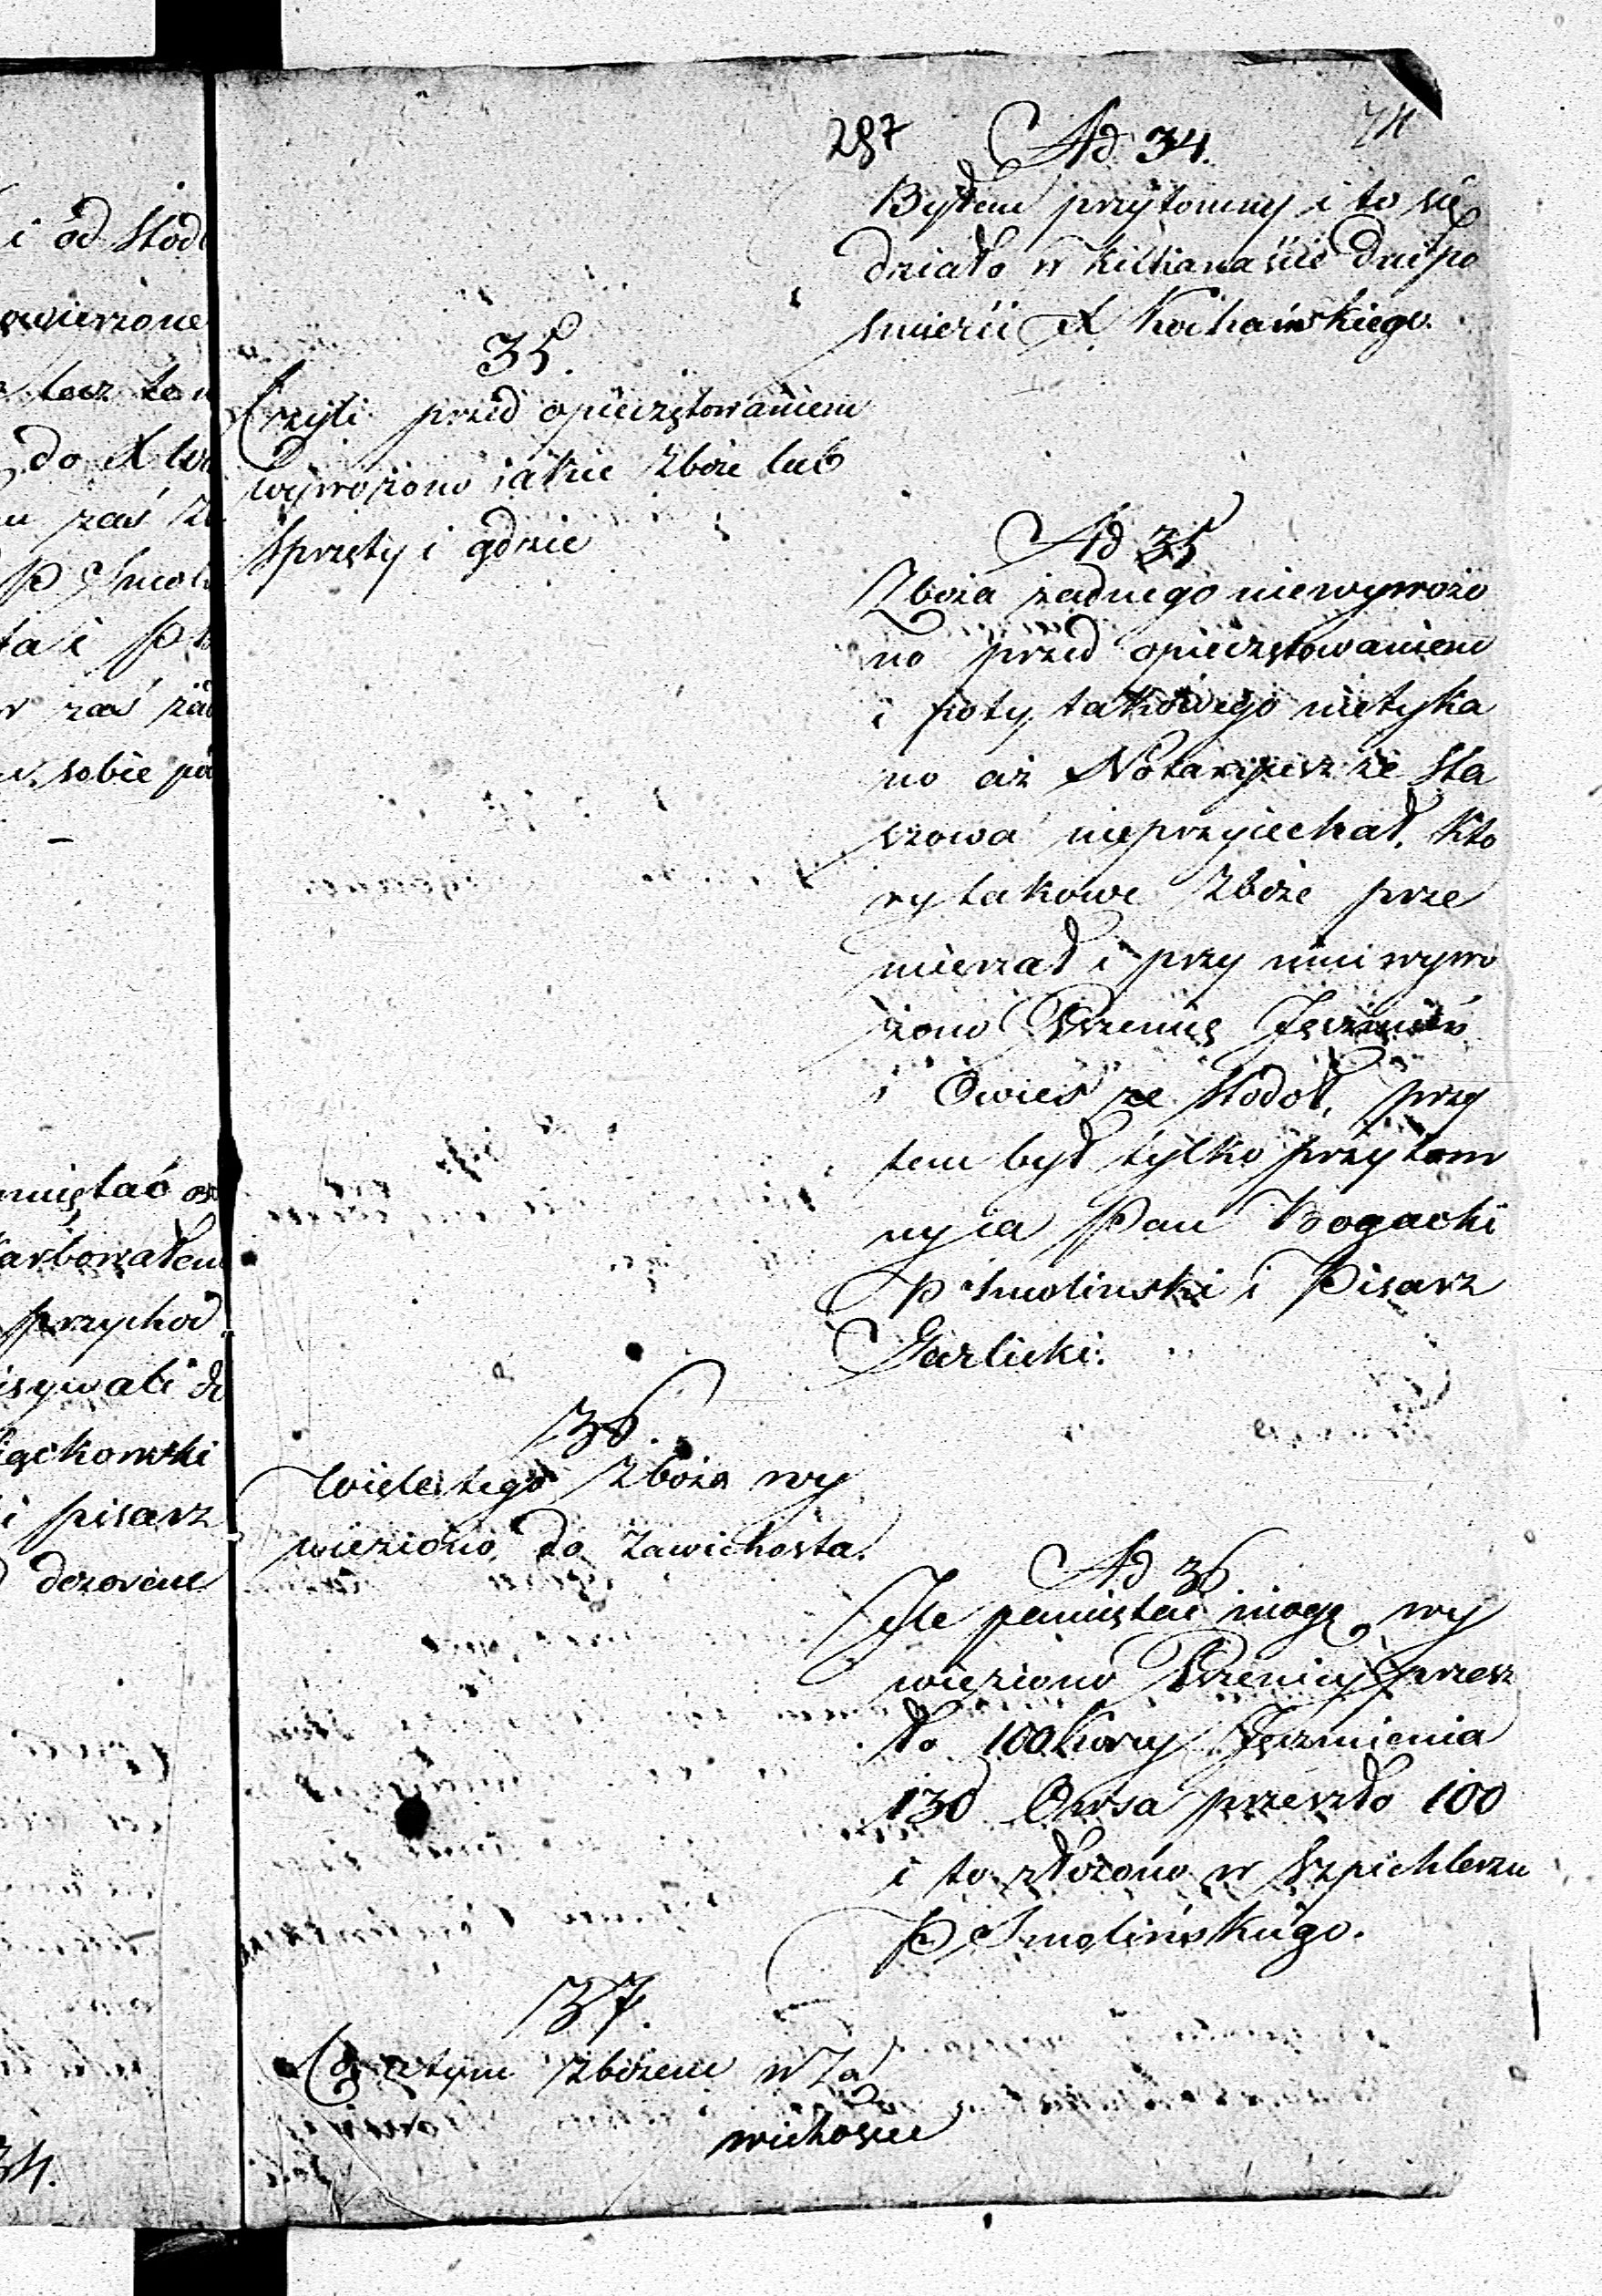 i od Stod
owierzone
lecz ten
do X
zaś
P Smoli
ta i
zaś
sobie
miętać
Karbowałem
przychod
isywali
ąckowski
i pisarz
dozorem
34.
297
Ad 34.
Byłem przytomny i to się
działo w kilkanaście dni po
śmierci X Kochańskiego.
35.
Czyli przed opieczętowaniem
wywożono iakie zboże lub
Sprzęty i gdzie
Ad 35
Zboża żadnego niewywożo
no przed opieczętowaniem
i poty takowego nietyka
no aż Notaryusz ze Sta
szowa nieprzyiechał. Kto
ry takowe zboże prze
mierzał i przy nim wywo
żono Pszenicę Jęczmień
i Owies ze Stodoł, przy
tem był tylko przytom
ny ia Pan Bogacki
P Smolinski i Pisarz
Garlicki.
36.
Wiele tego zboża wy
wieziono do Zawichosta.
Ad 36
Ile pamiętać mogę wy
wieziono Pszenicy przesz
ło 100 Korcy Jęczmienia
130 Owsa przeszło 100
i to złożono w Szpichlerzu
P Smolińskiego.
37.
Co z tym zbożem w Za
wichoście